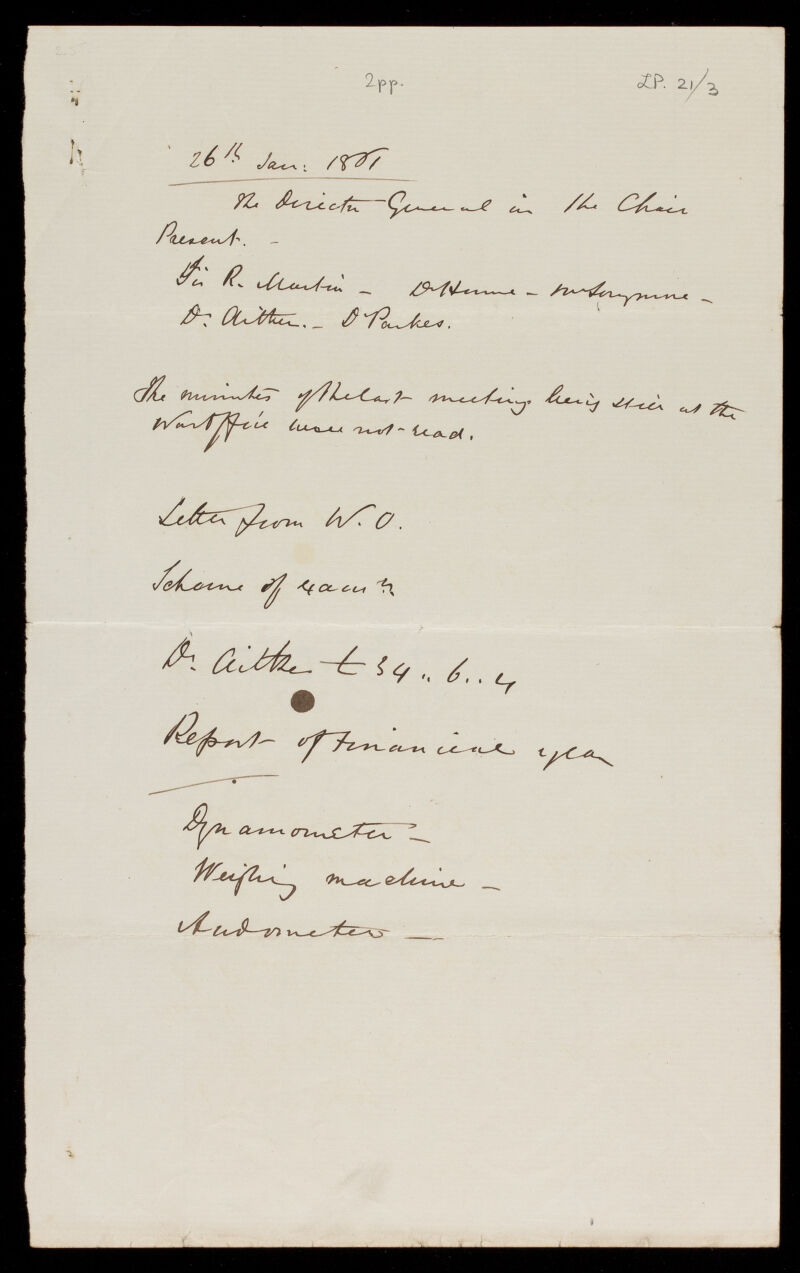 2pp.
LP. 21/3
26th Jan: 18
The Director General in the Chair
Present. -
Sir R. Martin - Dr Hume - Mr Longmore -
Dr. Aitken. - Dr Parkes.
The minutes of the last meeting being still at the
War Office were not read.
Letter from W. O.
Scheme of examn
Dr. Aitken £34 .. 6 .. 4
Report of Financial year
Dynamometer -
Weighing machine -